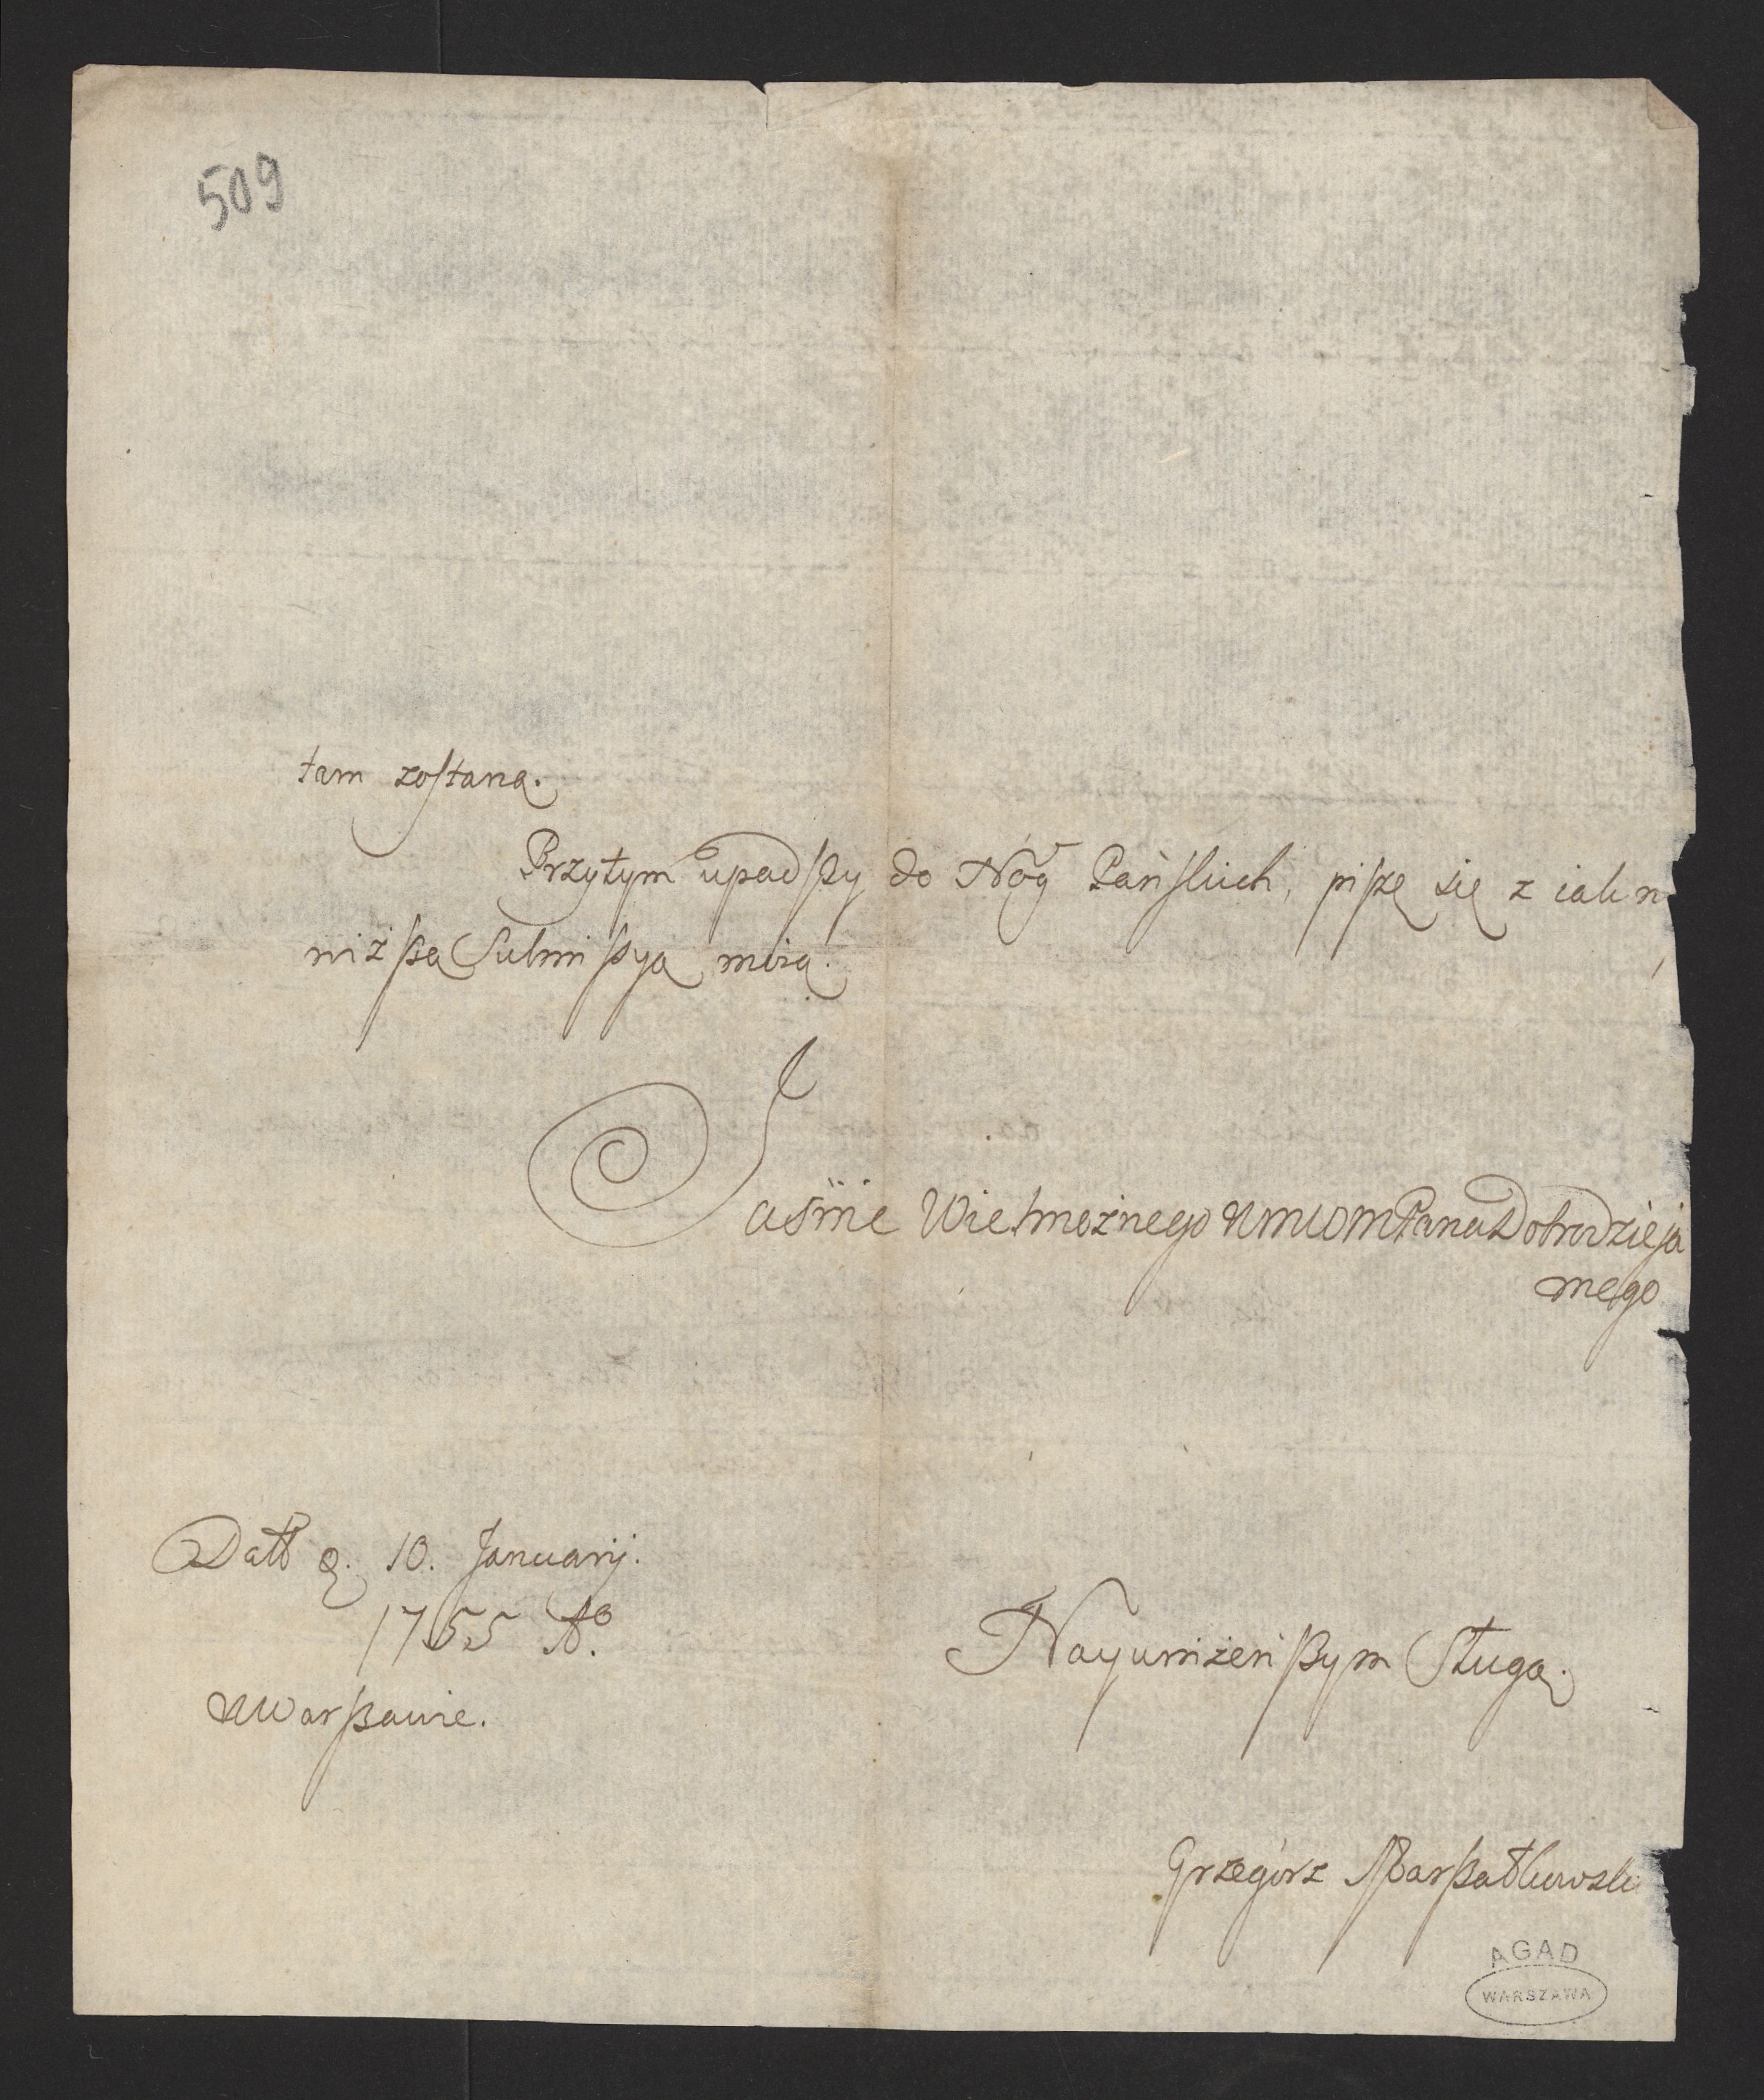 509
tam zostaną.
Przytym upadszy do Nóg Pańskich, piszę się z iak n
niższą Submissyą moią.
Jaśnie Wielmożnego WMWMPana Dobrodzieja
mego
Datt d. 10. Januarij.
1755 Aº.
w Warszawie.
Nayuniżeńszym Sługą.
Grzegórz Marszałkowski
AGAD
WARSZAWA